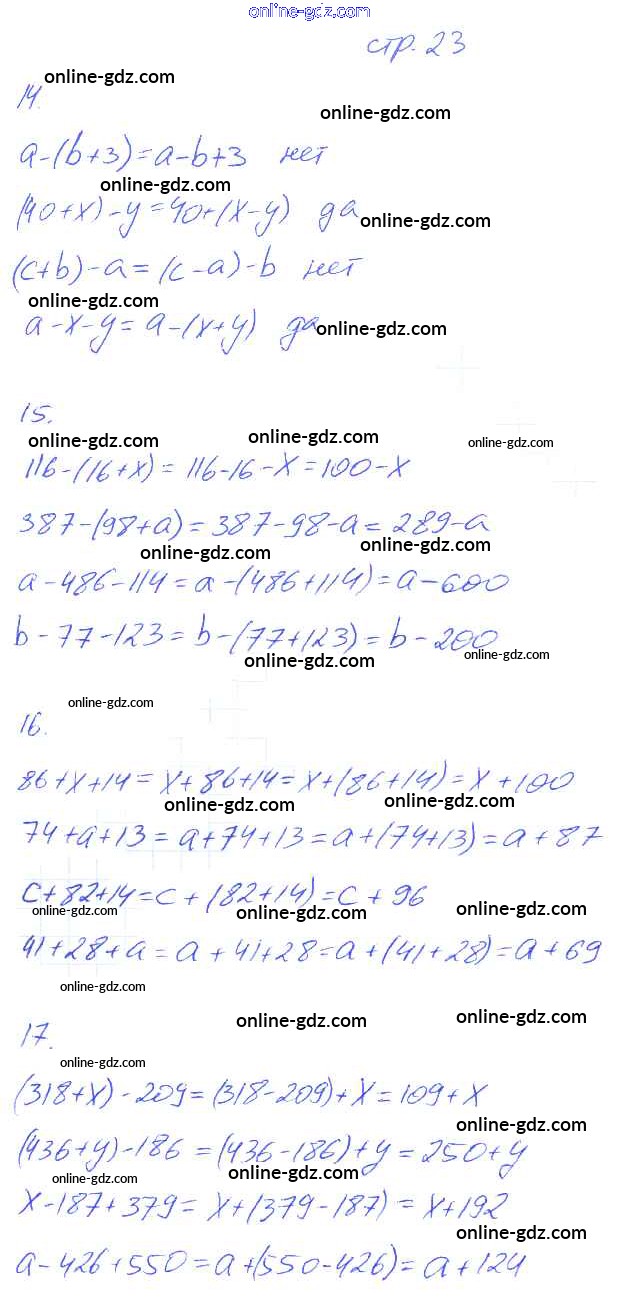 online-gdz.com
стр. 23
online-gdz.com
14.
online-gdz.com
a-(b+3)=a-b+3 нет
online-gdz.com
(40+x)-y=40+(x-y) да
online-gdz.com
(c+b)-a=(c-a)-b нет
online-gdz.com
a-x-y=a-(x+y) да
online-gdz.com
15.
online-gdz.com online-gdz.com online-gdz.com
116-(16+x)=116-16-x=100-x
387-(98+a)=387-98-a=289-a
online-gdz.com online-gdz.com
a-486-114=a-(486+114)=a-600
b-77-123=b-(77+123)=b-200
online-gdz.com online-gdz.com
online-gdz.com
16.
86+x+14=x+86+14=x+(86+14)=x+100
online-gdz.com online-gdz.com
74+a+13=a+74+13=a+(74+13)=a+87
c+82+14=c+(82+14)=c+96
online-gdz.com online-gdz.com online-gdz.com
41+28+a=a+41+28=a+(41+28)=a+69
online-gdz.com
online-gdz.com online-gdz.com
17.
online-gdz.com
(318+x)-209=(318-209)+x=109+x
online-gdz.com
(436+y)-186=(436-186)+y=250+y
online-gdz.com online-gdz.com
x-187+379=x+(379-187)=x+192
online-gdz.com
a-426+550=a+(550-426)=a+124